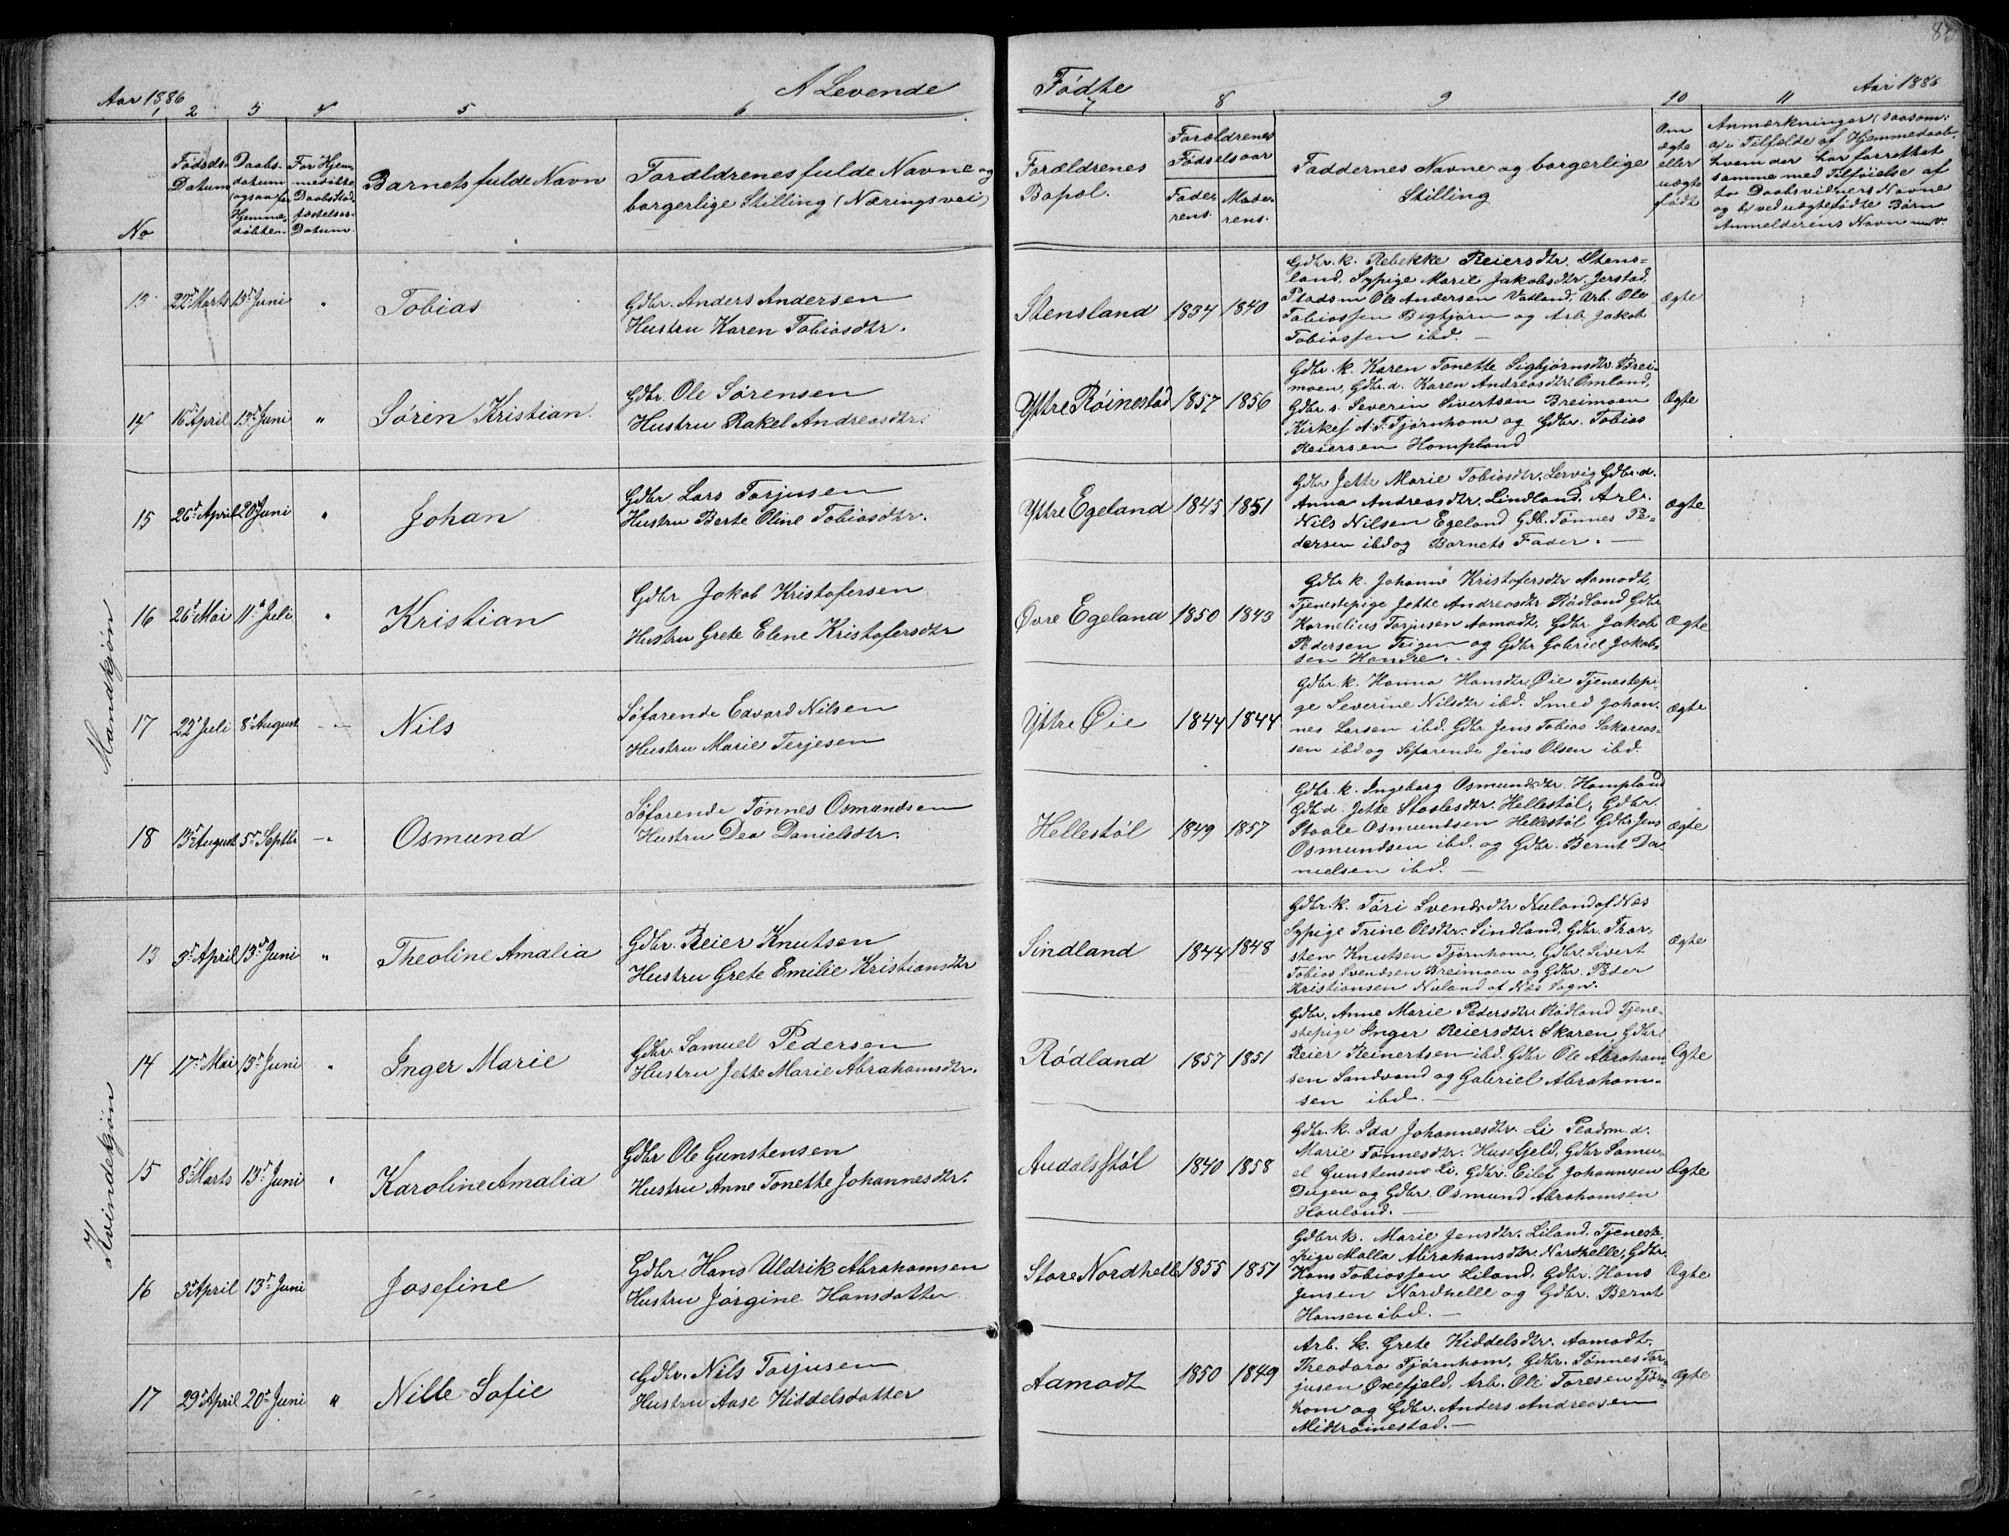 Aar 1886
A Levende
Fødte
Aar 1886
1 2 3 4 5 6
7 8 9 10 11
No
Fødsels-
Datum
Daabs-
datum
(ogsaa for
Hjemme-
døbte
For Hjem-
medøbte
Daabsstad-
fæstelses-
Datum
Barnets fulde Navn
Forældrenes fulde Navne og
borgerlige Stilling (Næringsvei)
Forældrenes
Bopæl.
Forældrenes
Fødselsaar
Fader-
rens.
Mode-
rens.
Faddernes Navne og borgerlige
Stilling
Om
ægte
eller
uægte
født
Anmærkninger, saasom:
a, i Tilfælde af Hjemmedaab,
hvem der har forrettet
samme med Tilføielse af
to Daabsvidners Navne
og b, ved uægtefødte Børn
Anmelderens Navn m.v.
Mandkjøn
13 22de Marts 13de Juni " Tobias
Gdbr. Anders Andersen
Hustru Karen Tobiasdtr.
Stensland 1834 1840
Gdbr. k. Rebekke Reiersdtr. Stens-
land, Sypige Marie Jakobsdtr. Jerstad,
Pladsm Ole Andersen Vatland, Arb. Ole
Tobiassen Bigtjørn og Arb. Jakob
Tobiassen ibd. —
Ægte
14 16de April 13de Juni " Søren Kristian
Gdbr. Ole Sørensen
Hustru Rakel Andreasdtr.
Yttre Røinestad 1857 1856
Gdbr. k. Karen Tonette Sigbjørnsdtr. Brei-
moen, Gdbr. d. Karen Andreasdtr. Omland,
Gdbr s. Severin Sivertsen Breimoen
Kirkes. A. T. Tjørnhom og Gdbr. Tobias
Reiersen Hompland
Ægte
15 26de April 20de Juni " Johan
Gdbr Lars Torjusen
Hustru Berte Oline Tobiasdtr.
Yttre Egeland 1845 1851
Gdbr Jette Marie Tobiasdtr. Lervig Gdbr. d.
Anna Andreasdtr. Lindland. Arb.
Nils Nilsen Egeland Gdb. Tønnes Pe-
dersen ibd og Barnets Fader. —
Ægte
16 26de Mai 11te Juli " Kristian
Gdbr Jakob Kristofersen
Hustru Grete Elene Kristofersdtr
Øvre Egeland 1850 1843
Gdbr k. Johanne Kristofersdtr Aamodt,
Tjenestepige Jette Andreasdtr Rødland Gdbr
Kornelius Torjusen Aamodt, Gdbr Jakob
Pedersen Teigen og Gdbr Gabriel Jakob-
sen
Ægte
17 22de Juli 8de August Nils
Søfarende Edvard Nilsen
Hustru Marie Terjesen
Yttre Øie 1844 1844
Gdbr. k. Hanna Hansdtr. Øie Tjenestepi-
ge Severine Nilsdtr ibd. Smed Johan-
nes Larsen ibd. Gdbr Jens Tobias Sakarias-
sen ibd og Søfarende Jens Olsen ibd.
Ægte
18 13de August 5te Septbr —" Osmund
Søfarende Tønnes Osmundsen
Hustru Dea Danielsdtr.
Hellestøl 1849 1857
Gdbr. k. Ingeborg Osmundsdtr. Hompland
Gdbr d. Jette Staalesdtr. Hellestøl, Gdbr.
Staale Osmundsen Hellestøl Gdbr Jens
Osmundsen ibd. og Gdbr. Bernt Da-
nielsen ibd. —
Ægte
Kvindekjøn
13 3de April 13de Juni " Theoline Amalia
Gdbr. Reier Knutsen
Hustru Grete Emilie Kristiansdtr
Sindland 1844 1848
Gdbr. k. Tøri Svendsdtr Nuland af Næs
Sypige Trine Olsdtr. Sindland, Gdbr. Thor-
sten Knutsen Tjørnhom, Gdbr. Sivert
Tobias Svendsen Breimoen og Gdbr. Peder
Kristiansen Nuland af Næs Sogn.
Ægte
14 17de Mai 13de Juni " Inger Marie
Gdbr. Samuel Pedersen
Hustru Jette Marie Abrahamsdtr.
Rødland 1857 1851
Gdbr, Anne Marie Pedersdtr. Rødland Tjene-
stepige Inger Reiersdtr. Skaren, Gdbr.
Reier Reinertsen ibd. Gdbr Ole Abraham-
sen Sandvand og Gabriel Abraham-
sen ibd. —
Ægte
15 8de Marts 13de Juni " Karoline Amalia
Gdbr Ole Gunstensen
Hustru Anne Tonette Johannesdtr.
Audalsstøl 1840 1858
Gdbr. k. Ida Johannesdtr. Li Pladsm. d.
Marie Tønnesdtr. Husefjeld, Gdbr Samu-
el Gunstensen Li, Gdbr. Eilef Johannesen
Dugen og Gdbr. Osmund Abrahamsen
Hauland. —
Ægte
16 3de April 13de Juni Josefine
Gdbr. Hans Uldrik Abrahamsen
Hustru Jørgine Hansdatter
Store Nordhelle 1855 1851
Gdbr. k. Marie Jensdtr. Liland. Tjeneste-
pige Malla Abrahamsdtr. Nordhelle, Gdbr.
Hans Tobiassen Liland, Gdbr. Hans
Jensen Nordhelle og Gdbr. Bernt
Hansen ibd. —
Ægte
17 29de April 20de Juni " Nille Sofie
Gdbr. Nils Torjusen
Hustru Aase Kiddelsdatter
Aamodt 1850 1849
Arb. k. Grete Kiddelsdtr. Aamodt.
Theodora Tjørnhom, Gdbr. Tønnes Tor-
jusen Oxefjeld, Arb. Ole Toresen Tjørn-
hom og Gdbr. Anders Andreasen
Midtrøinestad. —
Ægte